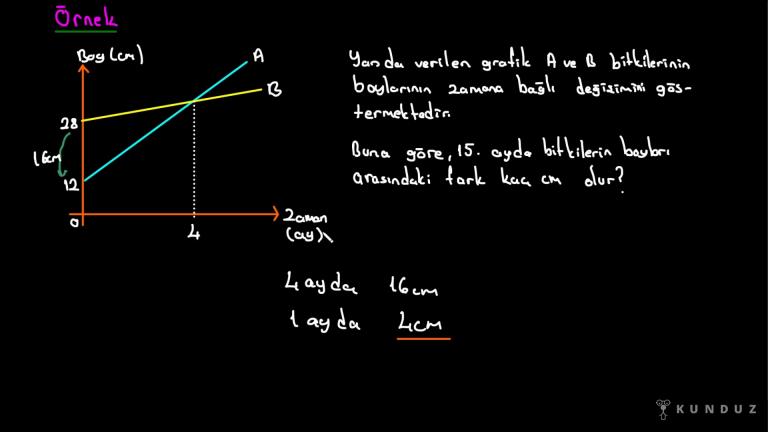 Örnek
Boy (cm)
A
B
28
16cm
12
0
4
Zaman
(ay)
Yanda verilen grafik A ve B bitkilerinin
boylarının zamana bağlı değişimini gös-
termektedir.
Buna göre, 15. ayda bitkilerin boyları
arasındaki fark kaç cm olur?
4 ayda 16cm
1 ayda 4cm
KUNDUZ